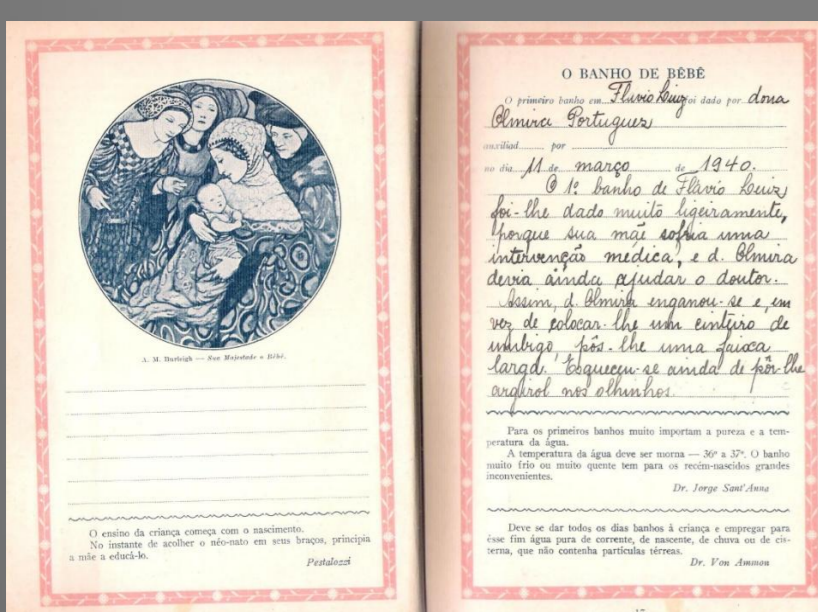 A. M. Burleigh — Sua Majestade o Bêbê.
O ensino da criança começa com o nascimento.
No instante de acolher o néo-nato em seus braços, principia
a mãe a educá-lo.
Pestalozzi
O BANHO DE BÊBÊ
O primeiro banho em Flavio Luiz foi dado por dona
Olmira Portuguez
auxiliad por
no dia 11 de março de 1940.
O 1º banho de Flávio Luiz
foi-lhe dado muito ligeiramente,
porque sua mãe sofria uma
intervenção médica, e d. Olmira
devia ainda ajudar o doutor.
Assim, d. Olmira enganou-se e, em
vez de colocar-lhe um cinteiro de
umbigo, pôs-lhe uma faixa
larga. Esqueceu-se ainda de pôr-lhe
argirol nos olhinhos.
Para os primeiros banhos muito importam a pureza e a tem-
peratura da água.
A temperatura da água deve ser morna — 36º a 37º. O banho
muito frio ou muito quente tem para os recém-nascidos grandes
inconvenientes.
Dr. Jorge Sant'Anna
Deve se dar todos os dias banhos à criança e empregar para
êsse fim água pura de corrente, de nascente, de chuva ou de cis-
terna, que não contenha partículas térreas.
Dr. Von Ammon